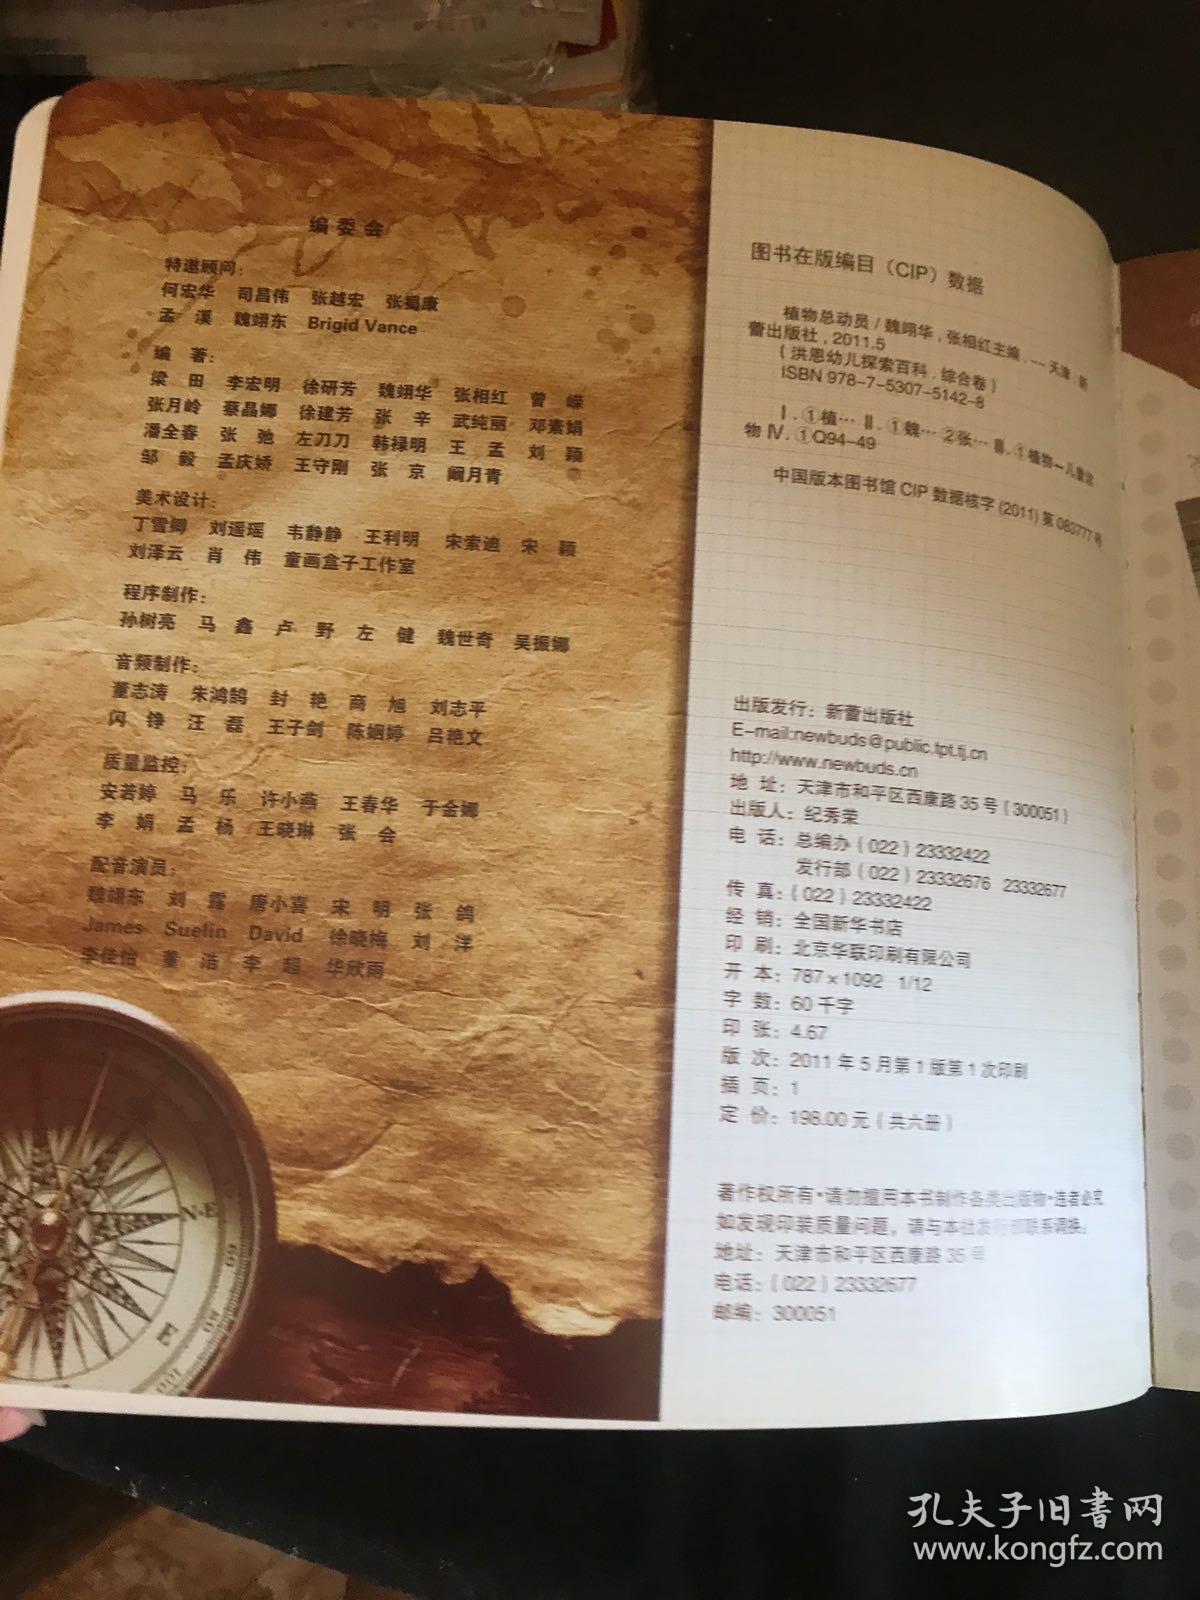 编委会
特邀顾问：
何宏华 司昌伟 张越宏 张蜀康
孟 溪 魏翊东 Brigid Vance
编 著：
梁 田 李宏明 徐研芳 魏翊华 张相红 曾 嵘
张月岭 蔡晶娜 徐建芳 张 辛 武纯丽 邓素娟
潘全春 张 弛 左刀刀 韩禄明 王 孟 刘 颖
邹 毅 孟庆娇 王守刚 张 京 阚月青
美术设计：
丁雪卿 刘遥瑶 韦静静 王利明 宋索迪 宋 颖
刘泽云 肖 伟 童画盒子工作室
程序制作：
孙树亮 马 鑫 卢 野 左 健 魏世奇 吴振娜
音频制作：
董志涛 朱鸿鹄 封 艳 商 旭 刘志平
闪 铮 汪 磊 王子剑 陈姻婷 吕艳文
质量监控：
安若婷 马 乐 许小燕 王春华 于金娜
李 娟 孟 杨 王晓琳 张 会
配音演员：
魏翊东 刘 霞 唐小喜 宋 明 张 鸽
James Suelin David 徐晓梅 刘 洋
李佳怡 董 浩 李 超 华欣雨
图书在版编目（CIP）数据
植物总动员/魏翊华，张相红主编．—天津：新
蕾出版社，2011.5
（洪恩幼儿探索百科．综合卷）
ISBN 978-7-5307-5142-8
Ⅰ．①植… Ⅱ．①魏…②张… Ⅲ．①植物—儿童读
物 Ⅳ．①Q94-49
中国版本图书馆 CIP 数据核字(2011)第 083777 号
出版发行：新蕾出版社
E-mail:newbuds@public.tpt.tj.cn
http://www.newbuds.cn
地 址：天津市和平区西康路 35 号（300051）
出版人：纪秀荣
电 话：总编办（022）23332422
发行部（022）23332676 23332677
传 真：（022）23332422
经 销：全国新华书店
印 刷：北京华联印刷有限公司
开 本：787×1092 1/12
字 数：60 千字
印 张：4.67
版 次：2011 年 5 月第 1 版第 1 次印刷
插 页：1
定 价：198.00 元（共六册）
著作权所有•请勿擅用本书制作各类出版物•违者必究
如发现印装质量问题，请与本社发行部联系调换。
地址：天津市和平区西康路 35 号
电话：（022）23332677
邮编：300051
N-E
E
60
80
100
孔夫子旧书网
www.kongfz.com